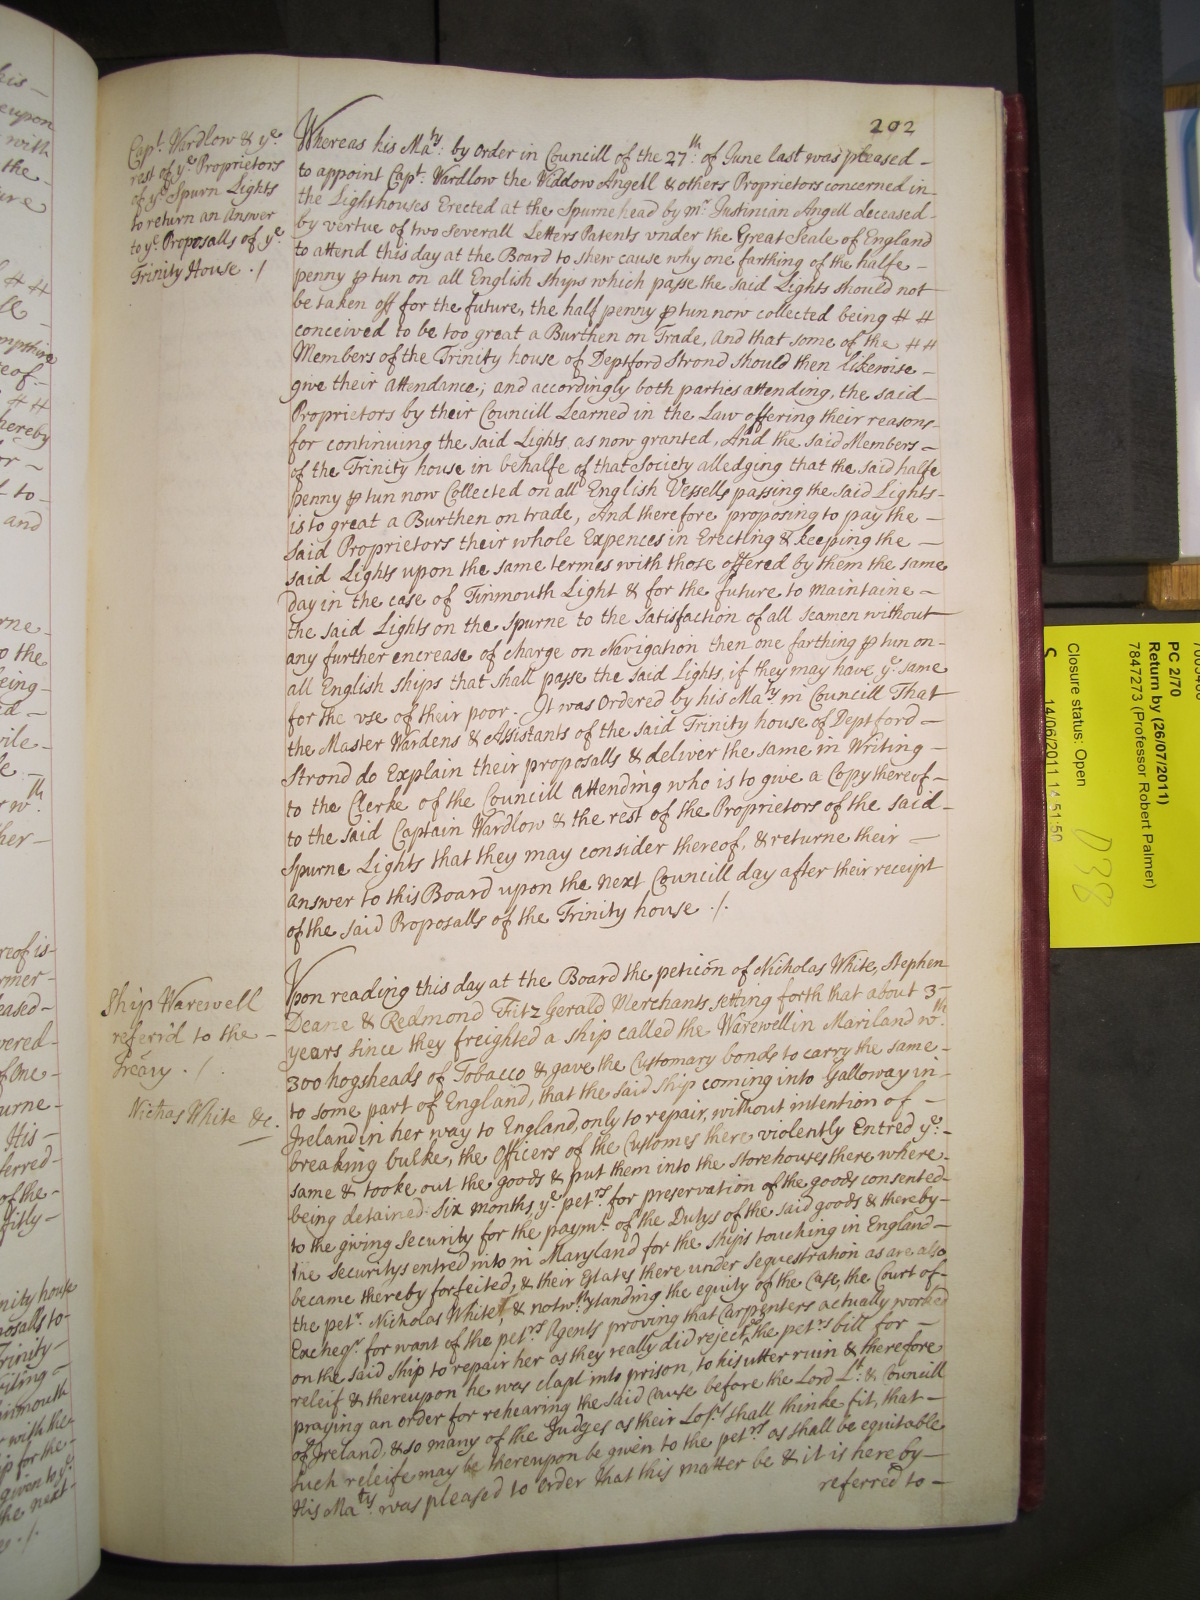 202
Capt. Wardlow & ye
rest of ye Proprietors
of ye Spurn Lights
to return an Answer
to ye Proposalls of ye
Trinity House ./
Whereas his Maty: by order in Councill of the 27th: of June last was pleased
to appoint Capt: Wardlow the Widdow Angell & others Proprietors concerned in
the Lighthouses Erected at the Spurne head by mr. Justinian Angell deceased
by vertue of two severall Letters Patents vnder the Great Seale of England
to attend this day at the Board to shew cause why one farthing of the halfe
penny p tun on all English ships which passe the said Lights should not
be taken off for the future, the half penny p tun now collected being
conceived to be too great a Burthen on Trade, And that some of the
Members of the Trinity house of Deptford Strond should then likewise
give their attendance; and accordingly both parties attending, the said
Proprietors by their Councill Learned in the Law offering their reasons
for continuing the said Lights, as now granted, And the said Members
of the Trinity house in behalfe of that Society alledging that the said halfe
penny p tun now Collected on all English Vessells passing the said Lights
is to great a Burthen on trade, And therefore proposing to pay the
said Proprietors their whole Expences in Erecting & keeping the
said Lights upon the same termes with those offered by them the same
day in the case of Tinmouth Light & for the future to maintaine
the said Lights on the Spurne to the satisfaction of all seamen without
any further encrease of charge on Navigation then one farthing p tun on
all English ships that shall passe the said Lights, if they may have ye same
for the vse of their poor. It was Ordered by his Maty in Councill That
the Master Wardens & Assistants of the said Trinity house of Deptford
Strond do Explain their proposalls & deliver the same in Writing
to the Clerke of the Councill attending who is to give a Copy thereof
to the said Captain Wardlow & the rest of the Proprietors of the said
Spurne Lights that they may consider thereof, & returne their
answer to this Board upon the next Councill day after their receipt
of the said Proposalls of the Trinity house ./.
Ship Warewell
referrd to the
Trẽary ./.
Nichas White &c.
Vpon reading this day at the Board the peticõn of Nicholas White, Stephen
Deane & Redmond Fitz Gerald Merchants setting forth that about 3
years since they freighted a ship called the Warewell in Mariland wth:
300 hogsheads of Tobacco & gave the Customary bonds to carry the same
to some part of England, that the said ship coming into Galloway in
Ireland in her way to England, only to repair, without intention of
breaking bulke, the Officers of the Customes there violently Entred ye:
same & tooke out the goods & put them into the storehouses there where
being detained six months, ye petrs. for preservation of the goods consented
to the giving Security for the paymt. of the Dutys of the said goods & thereby
the securitys entred into in Maryland for the ships touching in England
became thereby forfeited, & their Estates there under sequestration as are also
the petr. Nicholas White, & notwthstanding the equity of the Case, the Court of
Excheqr. for want of the petrs. Agents proving that Carpenters actually worked
on the said ship to repair her as they really did reject the petrs bill for
releif & thereupon he was clapt into prison, to his utter ruin & therefore
praying an order for rehearing the said Cause before the Lord Lt: & Councill
of Ireland, & so many of the Judges as their Lops: shall thinke fit, that
such releife may be thereupon be given to the petrs as shall be equitable
His Maty: was pleased to order that this matter be & it is here by
referred to
PC 2/70
Return by (26/07/2011)
7847273 (Professor Robert Palmer)
Closure status: Open
14/06/2011 14:51:50
D38